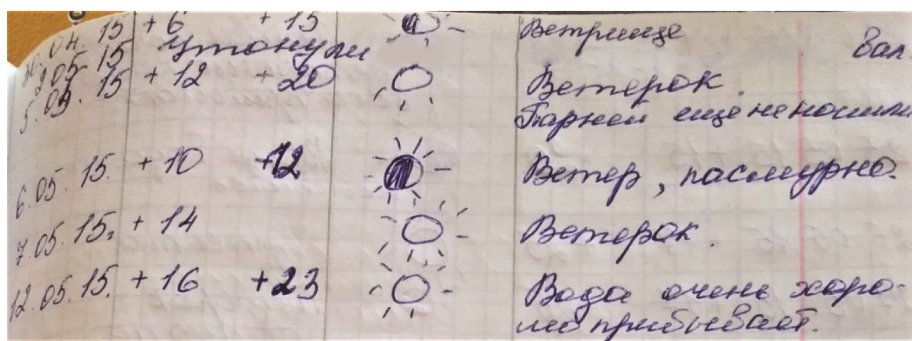 30.04.15 +6 +15 Ветрище
2.05.15 Утонули Зал
5.05.15 +12 +20 Ветерок.
Парней еще не нашли
6.05.15. +10 +12 Ветер, пасмурно.
7.05.15. +14 Ветерок.
12.05.15. +16 +23 Вода очень хоро-
шо прибывает.